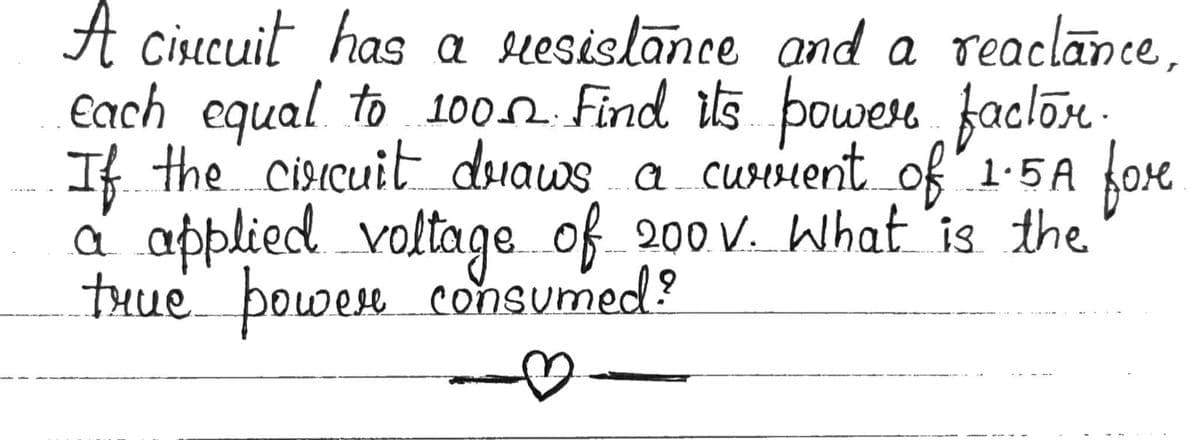 A circuit has a resistance and a reactance,
Each equal to 100Ω. Find its power factor.
If the circuit draws a current of 1.5A for
a applied voltage of 200 V. What is the
true power consumed?